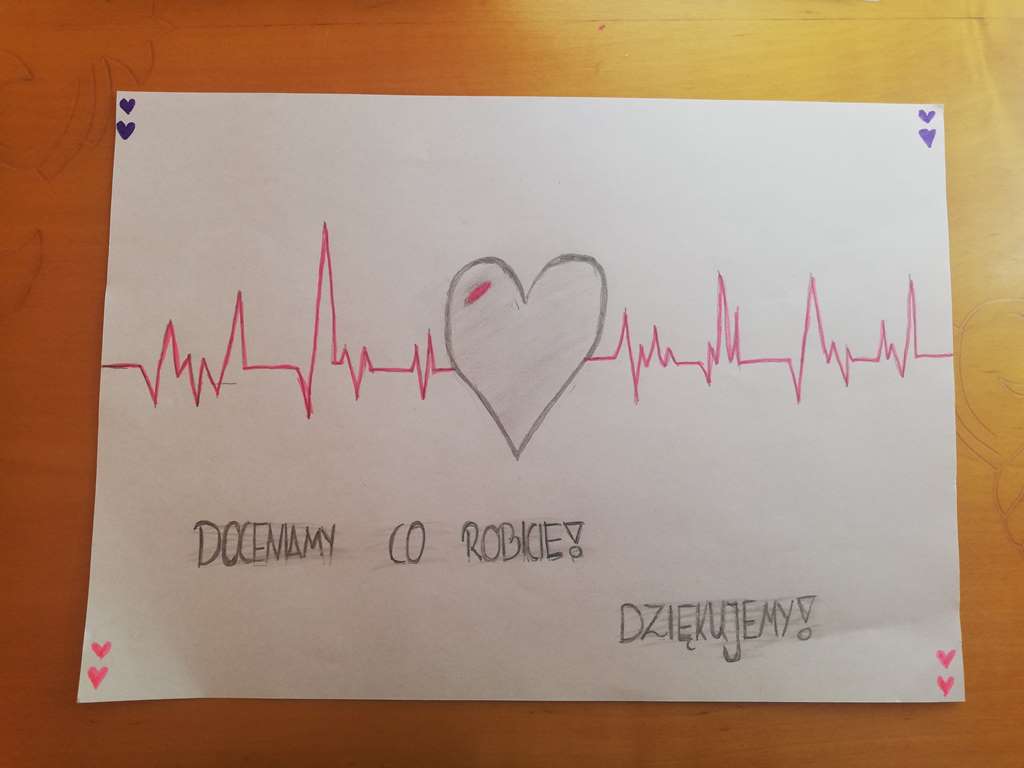 DOCENIAMY CO ROBICIE!
DZIĘKUJEMY!